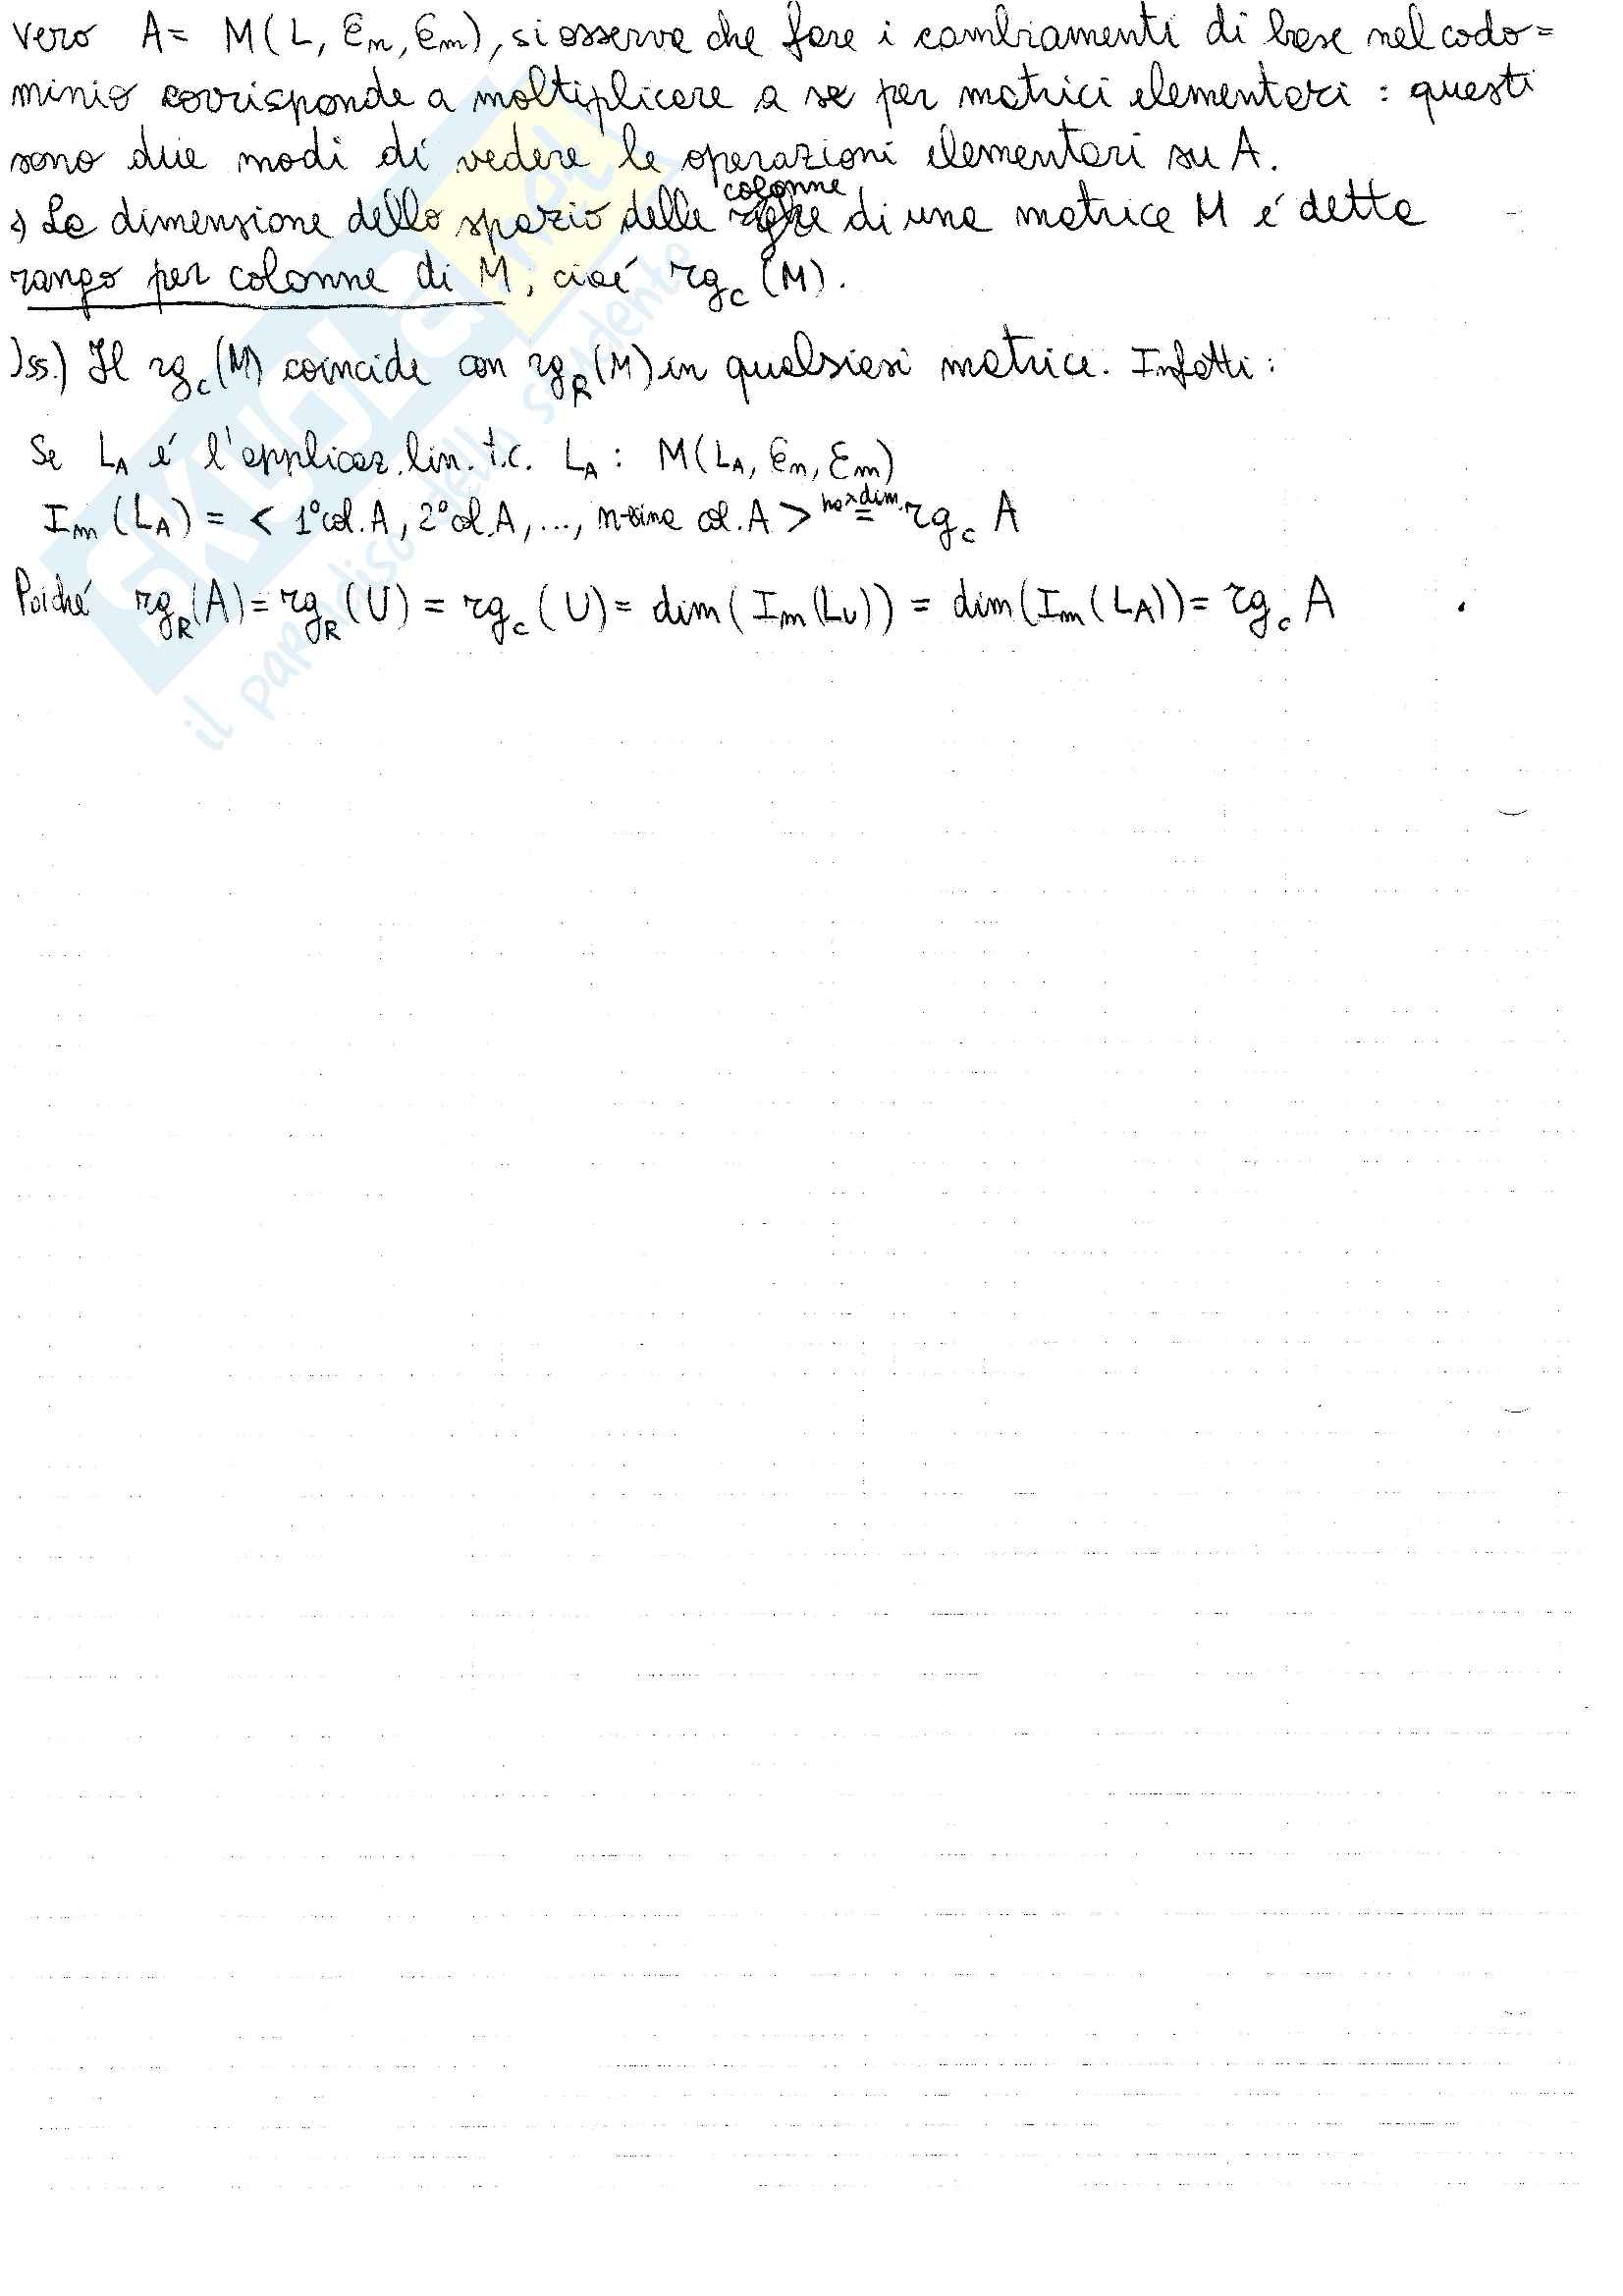 vero A = M(L, Ɛn, Ɛm), si osserva che fare i cambiamenti di base nel codo=
minio corrisponde a moltiplicare a sx per matrici elementari : questi
sono due modi di vedere le operazioni elementari su A.
La dimensione dello spazio delle colonne di una matrice M é detta
rango per colonne di M, cioé rg_c (M).
Oss.) Il rg_c (M) coincide con rg_R (M) in qualsiasi matrice. Infatti :
Se L_A é l'applicaz. lin. t.c. L_A : M(L_A, Ɛn, Ɛm)
Im (L_A) = < 1° col. A, 2° col. A, ..., n-sima col. A > ha x dim. = rg_c A
Poiché rg_R (A) = rg_R (U) = rg_c (U) = dim (Im (L_U)) = dim (Im (L_A)) = rg_c A
SKUOLA.net
il paradiso dello studente